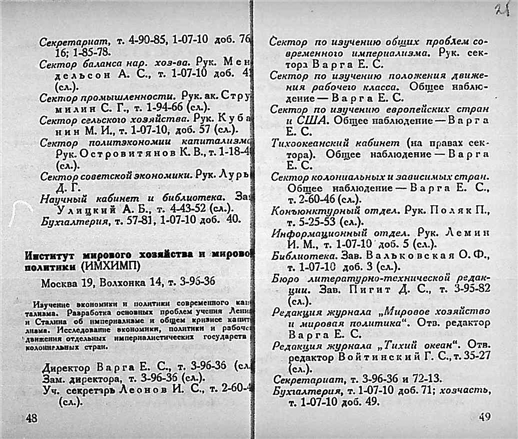 Секретариат, т. 4-90-85, 1-07-10 доб. 76,
16; 1-85-78.
Сектор баланса нар. хоз-ва. Рук. Мен
дельсон А. С., т. 1-07-10 доб. 4
(сл.).
Сектор промышленности. Рук. ак. Стру
милин С. Г., т. 1-94-66 (сл.).
Сектор сельского хозяйства. Рук. Куба
нин М. И., т. 1-07-10, доб. 57 (сл.).
Сектор политэкономии капитализма
Рук. Островитянов К. В., т. 1-18-4
(сл.).
Сектор советской экономики. Рук. Лурь
Д. Г.
Научный кабинет и библиотека. За
Улицкий А. Б., т. 4-43-52 (сл.).
Бухгалтерия, т. 57-81, 1-07-10 доб. 40.
Институт мирового хозяйства и мирово
политики (ИМХИМП)
Москва 19, Волхонка 14, т. 3-96-36
Изучение экономики и политики современного кап
тализма. Разработка основных проблем учения Лени
и Сталина об империализме и общем кризисе капит
лизма. Исследование экономики, политики и рабоче
движения отдельных империалистических государств
колониальных стран.
Директор Варга Е. С., т. 3-96-36 (сл.
Зам. директора, т. 3-96-36 (сл.).
Уч. секретарь Леонов И. С., т. 2-60-4
(сл.).
48
Сектор по изучению общих проблем со-
временного империализма. Рук. сек-
тора Варга Е. С.
Сектор по изучению положения движе-
ния рабочего класса. Общее наблю-
дение — Варга Е. С.
Сектор по изучению европейских стран
и США. Общее наблюдение — Варга
Е. С.
Тихоокеанский кабинет (на правах сек-
тора). Общее наблюдение — Варга
Е. С.
Сектор колониальных и зависимых стран.
Общее наблюдение — Варга Е. С.,
т. 2-60-46 (сл.).
Конъюнктурный отдел. Рук. Поляк П.,
т. 5-25-53 (сл.).
Информационный отдел. Рук. Лемин
И. М., т. 1-07-10 доб. 5 (сл.).
Библиотека. Зав. Вальковская О. Ф.,
т. 1-07-10 доб. 3 (сл.).
Бюро литературно-технической редак-
ции. Зав. Пигит Д. С., т. 3-95-82
(сл.).
Редакция журнала „Мировое хозяйство
и мировая политика“. Отв. редактор
Варга Е. С.
Редакция журнала „Тихий океан“. Отв.
редактор Войтинский Г. С., т. 35-27
(сл.).
Секретариат, т. 3-96-36 и 72-13.
Бухгалтерия, т. 1-07-10 доб. 71; хозчасть,
т. 1-07-10 доб. 49.
49